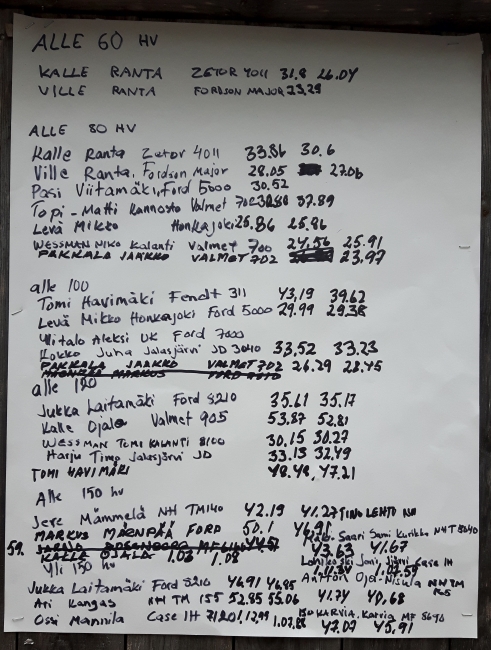 ALLE 60 HV
KALLE RANTA ZETOR 4011 31.8 26.04
VILLE RANTA FORDSON MAJOR 23,29
ALLE 80 HV
Kalle Ranta Zetor 4011 33.86 30.6
Ville Ranta, Fordson Major 28.05 27.06
Pasi Viitamäki, Ford 5000 30.52
Topi-Matti Kannosto Valmet 37.89
Levä Mikko Honkajoki 25.86 25.86
WESSMAN NIKO Kalanti Valmet 700 24,56 25.91
PAKKALA JAAKKO VALMET 702 23,97
alle 100
Tomi Havimäki Fendt 311 43,19 39.62
Levä Mikko Honkajoki Ford 5000 29.99 29.38
Ylitalo Aleksi UK Ford 7000
Kokko Juha Jalasjärvi JD 3040 33,52 33.23
PAKKALA JAAKKO VALMET 702 26.29 28.45
alle 120
Jukka Laitamäki Ford 8210 35.61 35.17
Kalle Ojala Valmet 905 53.87 52.81
WESSMAN TOMI KALANTI 8100 30.15 30.27
Harju Timo Jalasjärvi JD 33.13 32,49
TOMI HAVIMÄKI 48.48, 47.21
Alle 150 hv
Jere Mämmelä NH TM140 42.19 41.27 TINO LEHTO
MARKUS MÄENPÄÄ FORD 50.1 46,91
Saari Sami Kurikka NH T8040
43.63 41.67
KALLE OJALA 1.03 1.08
Yli 150
Joni, Järvi Case IH
Jukka Laitamäki Ford 8210 46,91 46,95
Ari Kangas NH TM 155 52.85 55.06 41.74 40,68
Ossi Mannila Case IH
KARVIA, Karvia MF 8640
47.07 45.91